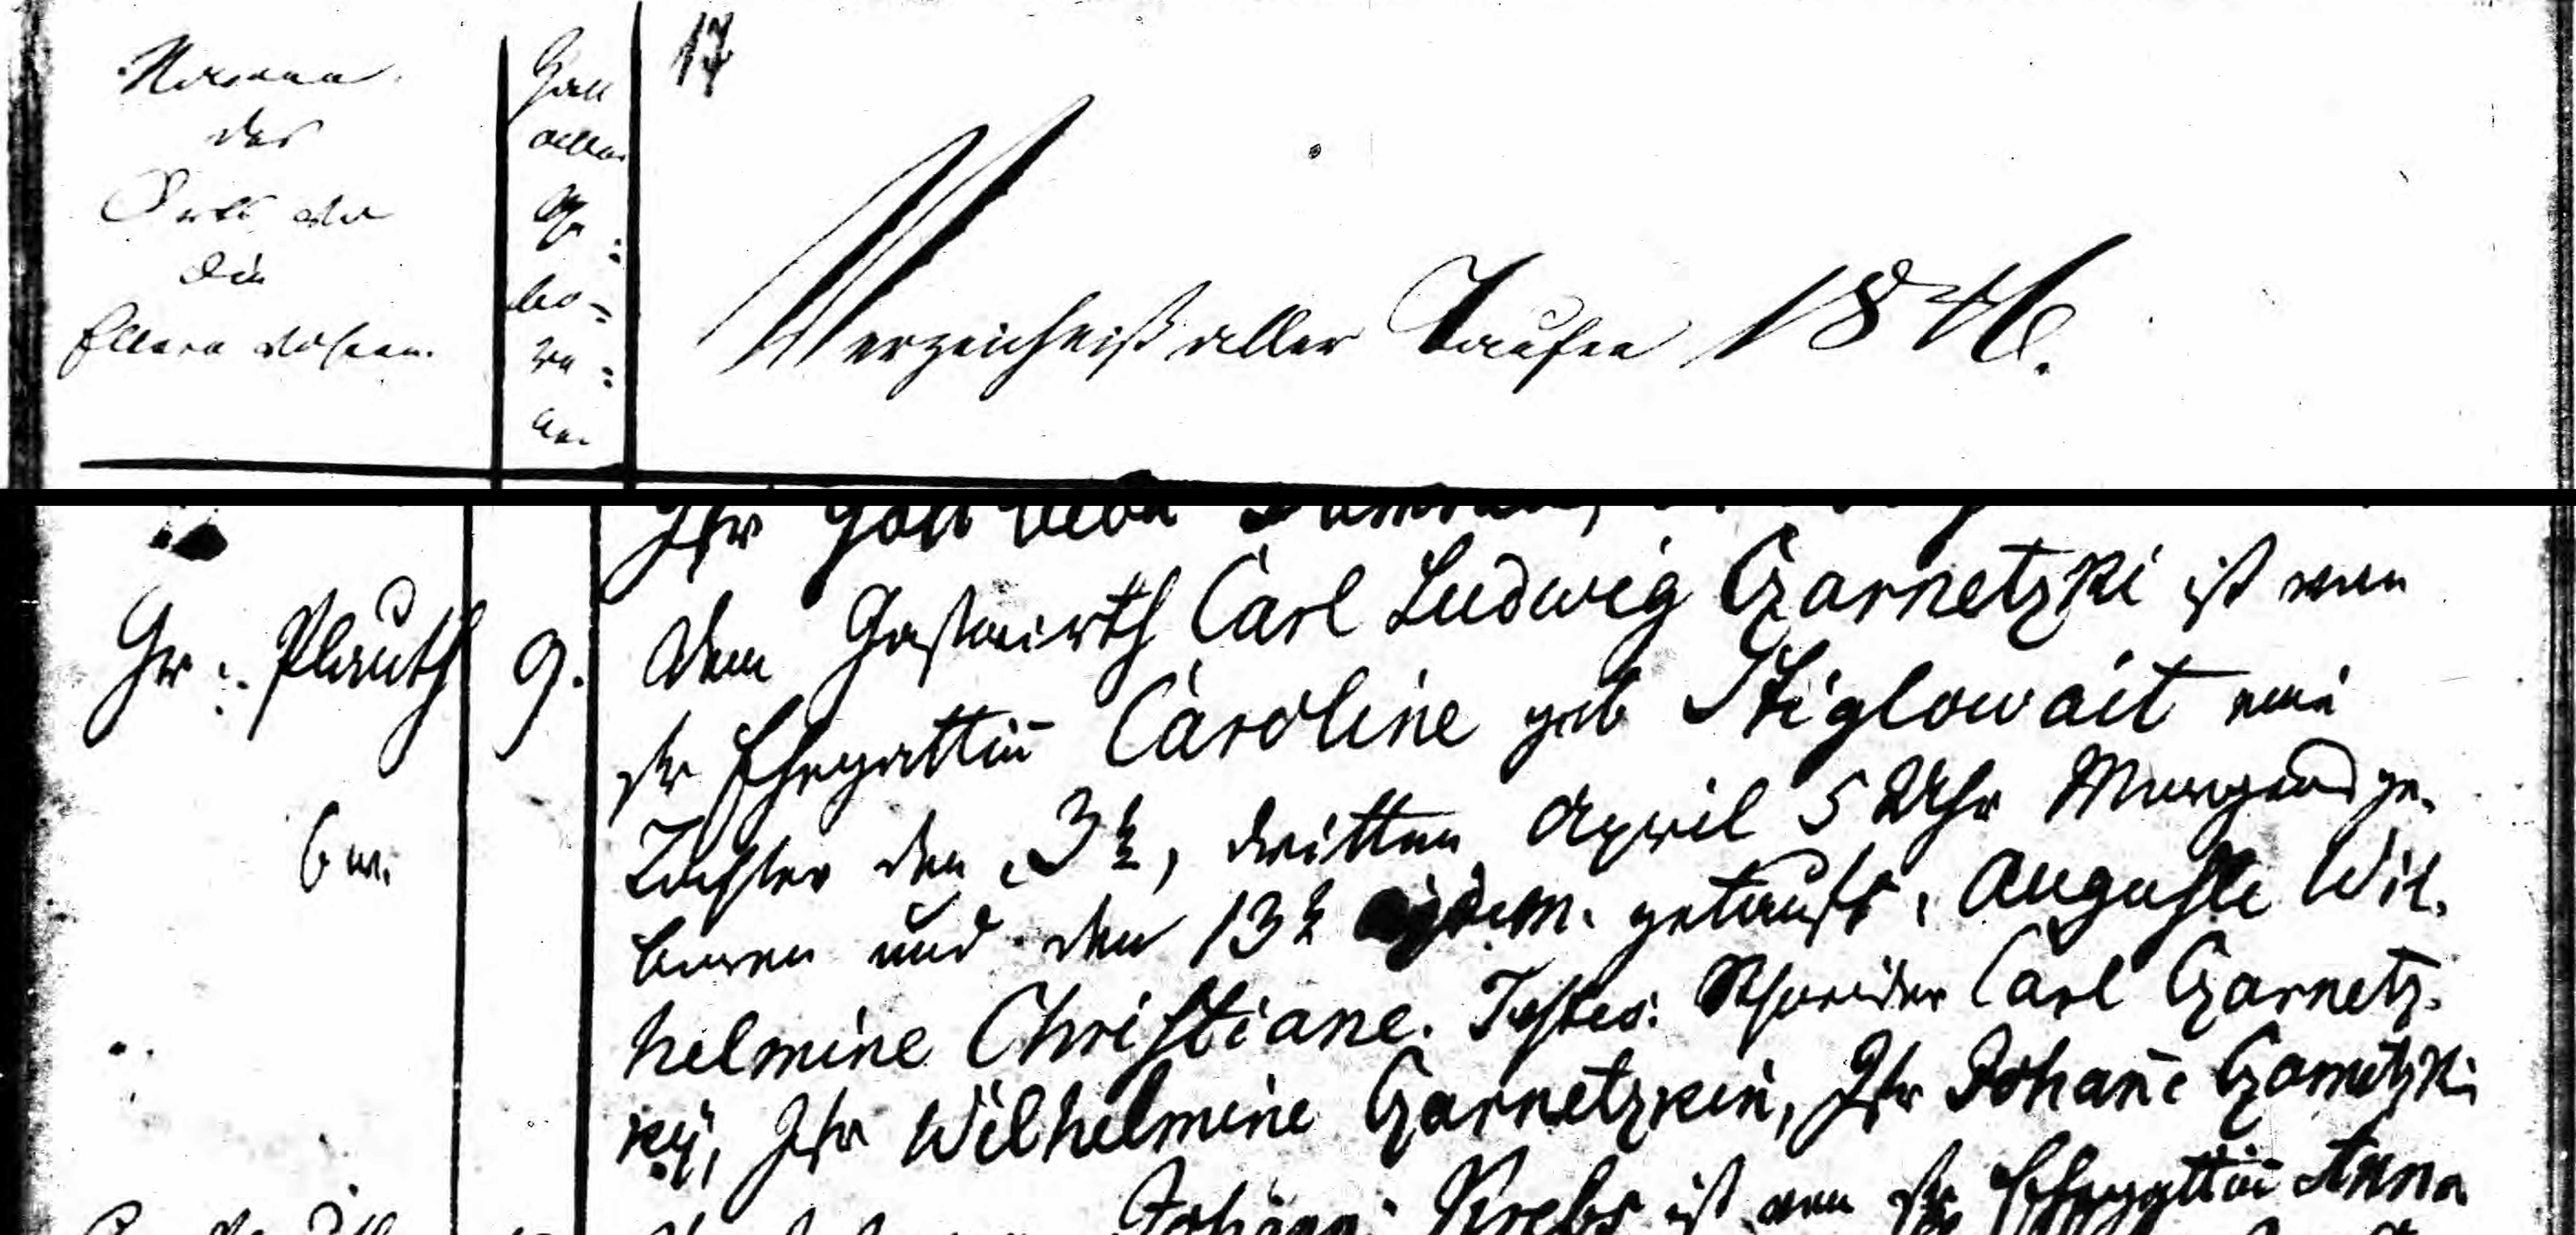 Namen
des
Orts wo
die
Eltern wohnen.
Zall
aller
Ge=
bo=
re=
nen
17
Verzeichniß aller Taufen 1846.
Ihr Gottlieb
Gr: Plauth
9.
Dem Gastwirth Carl Ludwig Czarnetzki ist von
sr Ehegattin̄ Caroline geb Stiglowait eine
Tochter den 3t, dritten April 5 Uhr Morgends ge-
boren und den 13t ejusdem. getauft, Auguste Wil-
helmine Christiane. Testes: Schneider Carl Czarnetz-
ky, Jfr Wilhelmine Czarnetzkin, Jfr Johan̄e Czarnetzki
6 w.
Johann Krebs ist von sr Ehegattin̄ Anna